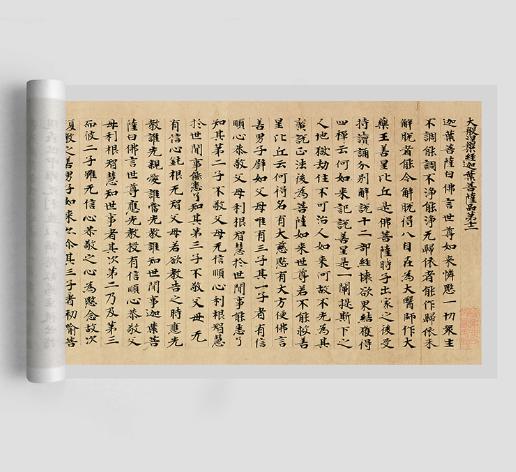 大般涅槃經迦葉菩薩品第十二
迦葉菩薩白佛言世尊如來憐愍一切眾生
不調能調不淨能淨无歸依者能作歸依未
解脫者能令解脫得八自在為大醫師作大
藥王善星比丘是佛菩薩時子出家之後受
持讀誦分別解說十二部經壞欲界結獲得
四禪云何如來記說善星是一闡提廝下之
人地獄劫住不可治人如來何故不先為其
演說正法後為菩薩如來世尊若不能救善
星比丘云何得名有大慈愍有大方便佛言
善男子譬如父母唯有三子其一子者有信
順心恭敬父母利根智慧於世間事能悉了
知其第二子不敬父母无信順心利根智慧
於世間事能悉了知其第三子不敬父母无
有信心鈍根无智父母若欲教告之時應先
教誰先親愛誰當先教誰知世間事迦葉菩
薩白佛言世尊應先教授有信順心恭敬父
母利根智慧知世事者其次第二乃及第三
而彼二子雖无信心恭敬之心為愍念故次
復教之善男子如來亦介其三子者初喻菩